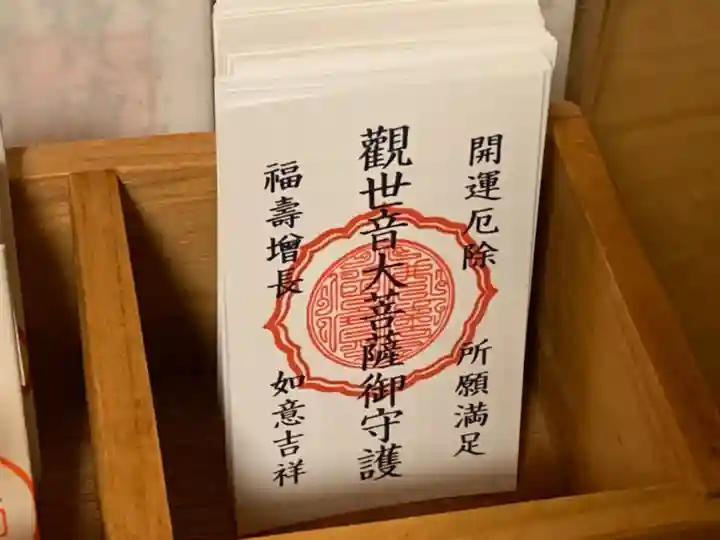 開運厄除 所願満足
觀世音大菩薩御守護
福壽增長 如意吉祥